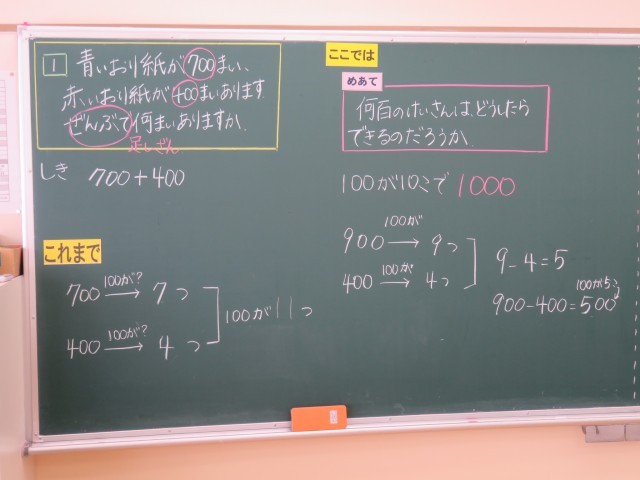 1
青いおり紙が700まい、
赤いおり紙が400まいあります。
ぜんぶで何まいありますか。
足しざん
しき 700+400
これまで
700 100が? → 7つ
400 100が? → 4つ
100が11つ
ここでは
めあて
何百のけいさんは、どうしたら
できるのだろうか。
100が10こで 1000
900 100が → 9つ
400 100が → 4つ
9-4=5
100が5こ
900-400=500